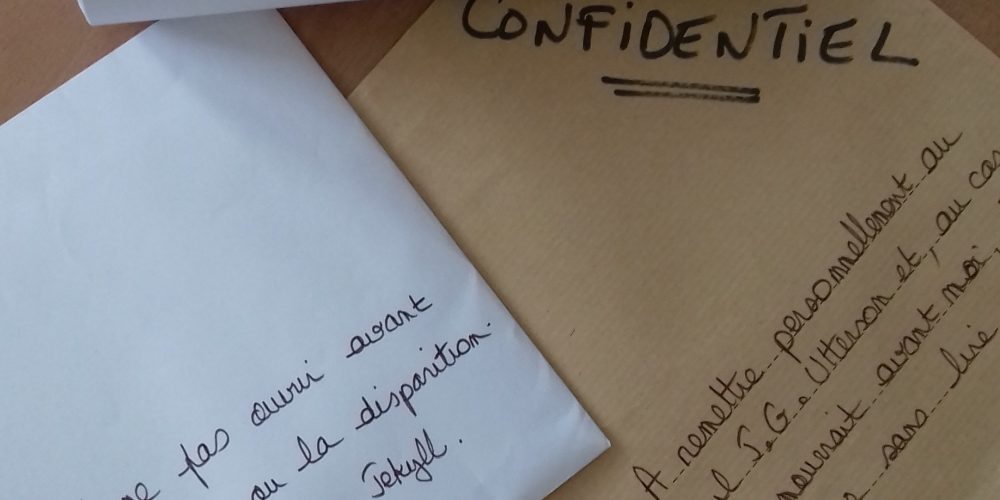 CONFiDENTiEL
A remettre personnellement au
J.G. Utterson et, au cas
mourrait avant moi
sans lire
pas ouvrir avant
ou la disparition
Jekyll.